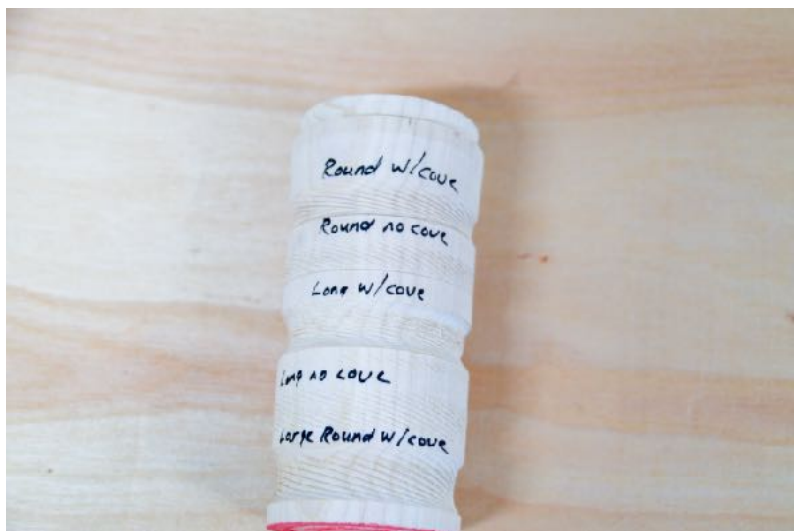 Round w/cove
Round no cove
Long w/cove
Long no cove
Large Round w/cove